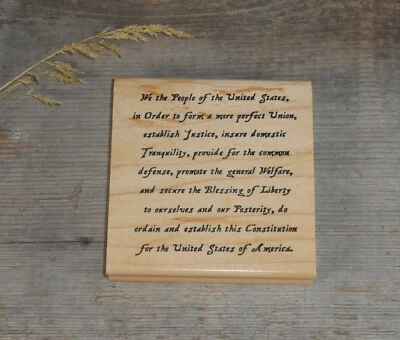 We the People of the United States,
in Order to form a more perfect Union,
establish Justice, insure domestic
Tranquility, provide for the common
defense, promote the general Welfare,
and secure the Blessing of Liberty
to ourselves and our Posterity, do
ordain and establish this Constitution
for the United States of America.